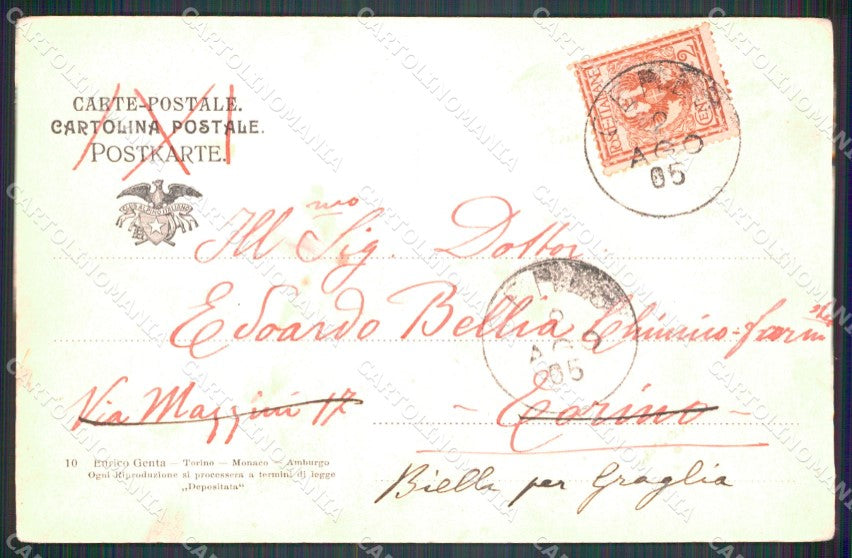 CARTE-POSTALE.
CARTOLINA POSTALE.
POSTKARTE.
CENT. 2
POSTE ITALIANE
2
AGO
05
Ill mo Sig. Dottor
Edoardo Bellia Chimico-farm sta
2
AGO
05
Via Mazzini 17 - Torino -
10 Enrico Genta — Torino — Monaco — Amburgo
Ogni Riproduzione si processera a termini di legge
„Depositata“
Biella per Graglia
CARTOLINOMANIA